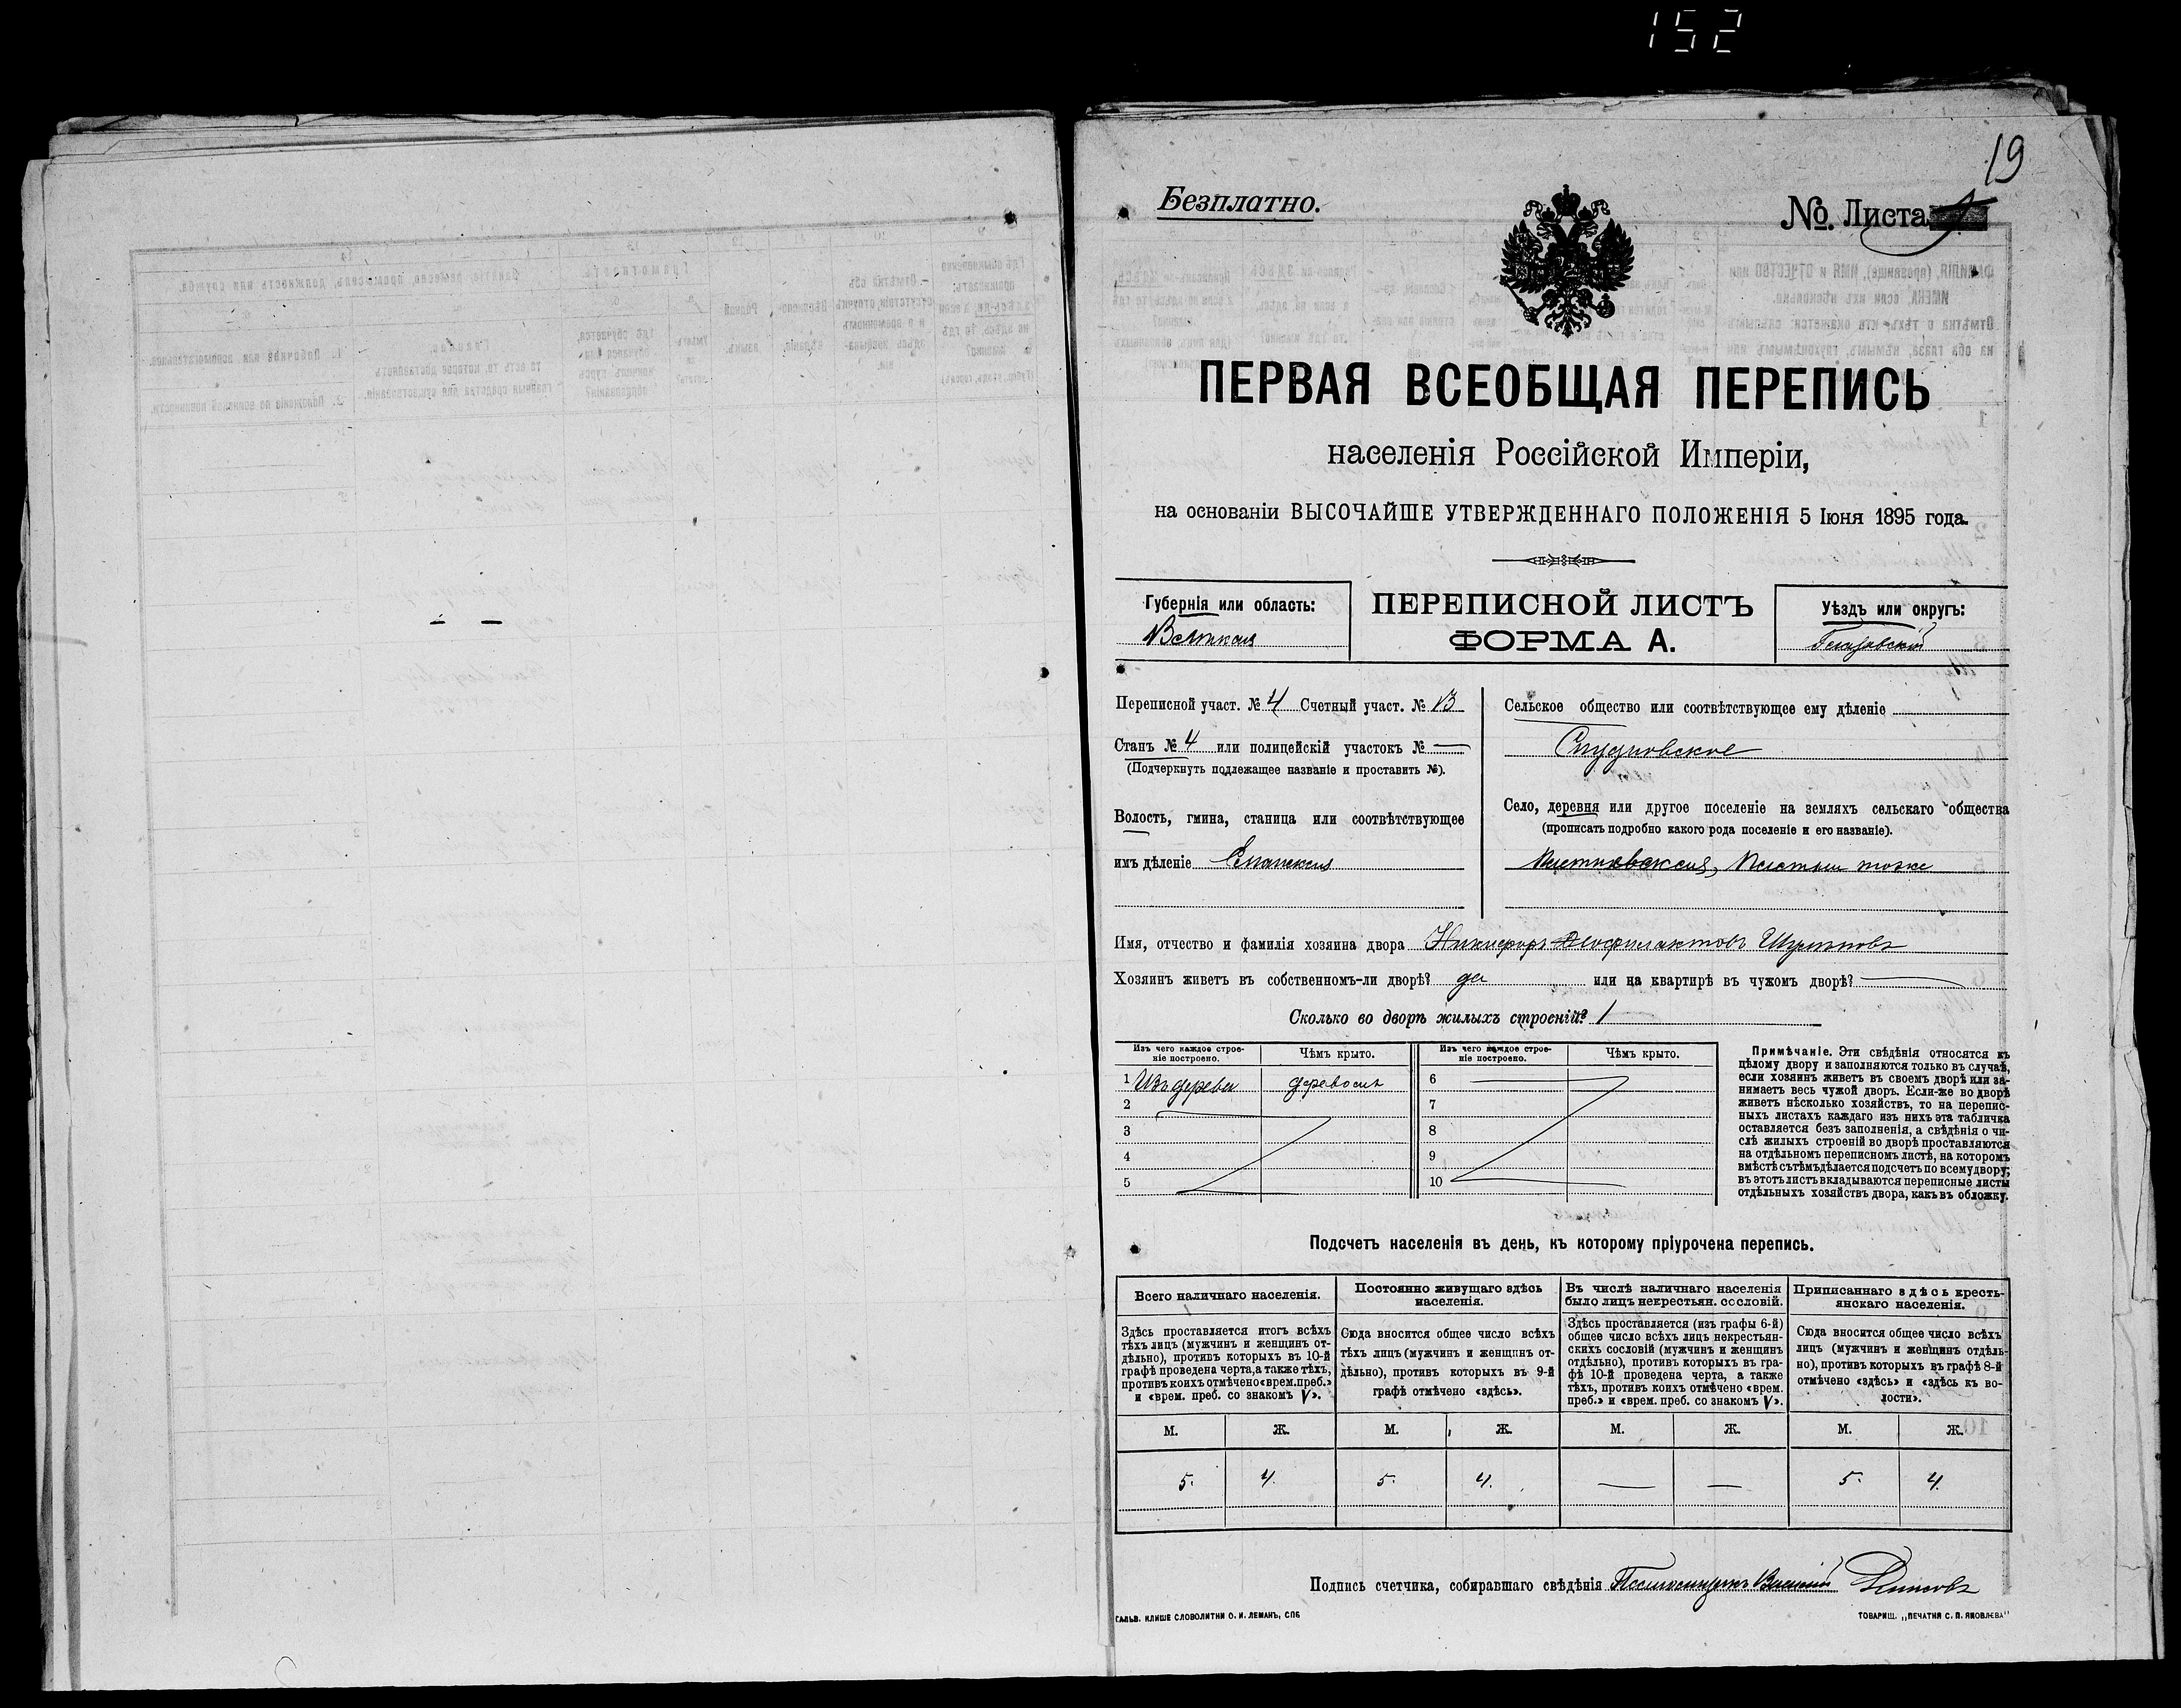 152
19
Безплатно.
№. Листа
ПЕРВАЯ ВСЕОБЩАЯ ПЕРЕПИСЬ
населенія Россійской Имперіи,
на основаніи ВЫСОЧАЙШЕ УТВЕРЖДЕННАГО ПОЛОЖЕНІЯ 5 Іюня 1895 года.
Губернія или область:
Вятская
ПЕРЕПИСНОЙ ЛИСТЪ
ФОРМА А.
Уѣздъ или округъ:
Глазовскій
Переписной участ. № 4 Счетный участ. № 13
Станъ № 4 или полицейскій участокъ № —
(Подчеркнуть подлежащее названіе и проставить №).
Волость, гмина, станица или соотвѣтствующее
имъ дѣленіе
Сельское общество или соотвѣтствующее ему дѣленіе
Село, деревня или другое поселеніе на земляхъ сельскаго общества
(прописать подробно какого рода поселеніе и его названіе).
тоже
Имя, отчество и фамилія хозяина двора Никифоръ Феофилактовъ
Хозяинъ живетъ въ собственномъ-ли дворѣ? да или на квартирѣ въ чужомъ дворѣ? —
Сколько во дворѣ жилыхъ строеній? 1
Изъ чего каждое строе-
ніе построено.
Чѣмъ крыто.
Изъ чего каждое строе-
ніе построено.
Чѣмъ крыто.
1 Изъ дерева деревомъ 6
2 7
3 8
4 9
5 10
Примѣчаніе. Эти свѣдѣнія относятся къ
цѣлому двору и заполняются только въ случаѣ,
если хозяинъ живетъ въ своемъ дворѣ или за-
нимаетъ весь чужой дворъ. Если-же во дворѣ
живетъ нѣсколько хозяйствъ, то на перепис-
ныхъ листахъ каждаго изъ нихъ эта табличка
оставляется безъ заполненія, а свѣдѣнія о чи-
слѣ жилыхъ строеній во дворѣ проставляются
на отдѣльномъ переписномъ листѣ, на которомъ
вмѣстѣ съ тѣмъ дѣлается подсчетъ по всему двору;
въ этотъ листъ вкладываются переписные листы
отдѣльныхъ хозяйствъ двора, какъ въ обложку.
Подсчетъ населенія въ день, къ которому пріурочена перепись.
Всего наличнаго населенія.
Здѣсь проставляется итогъ всѣхъ
тѣхъ лицъ (мужчинъ и женщинъ от-
дѣльно), противъ которыхъ въ 10-й
графѣ проведена черта, а также тѣхъ,
противъ коихъ отмѣчено «врем. преб.»
и «врем. преб. со знакомъ V».
Постоянно живущаго здѣсь
населенія.
Сюда вносится общее число всѣхъ
тѣхъ лицъ (мужчинъ и женщинъ от-
дѣльно), противъ которыхъ въ 9-й
графѣ отмѣчено «здѣсь».
Въ числѣ наличнаго населенія
было лицъ некрестьян. сословій.
Здѣсь проставляется (изъ графы 6-й)
общее число всѣхъ лицъ некрестьян-
скихъ сословій (мужчинъ и женщинъ
отдѣльно), противъ которыхъ въ гра-
фѣ 10-й проведена черта, а также
тѣхъ, противъ коихъ отмѣчено «врем.
преб.» и «врем. преб. со знакомъ V».
Приписаннаго здѣсь кресть-
янскаго населенія.
Сюда вносится общее число всѣхъ
лицъ (мужчинъ и женщинъ отдѣль-
но), противъ которыхъ въ графѣ 8-й
отмѣчено «здѣсь» и «здѣсь къ во-
лости».
М. Ж. М. Ж. М. Ж. М. Ж.
5. 4. 5. 4. — — 5. 4.
Подпись счетчика, собиравшаго свѣдѣнія
ГАЛЬВ. КЛИШЕ СЛОВОЛИТНИ О. И. ЛЕМАНЪ, СПБ
ТОВАРИЩ. „ПЕЧАТНЯ С. П. ЯКОВЛЕВА"